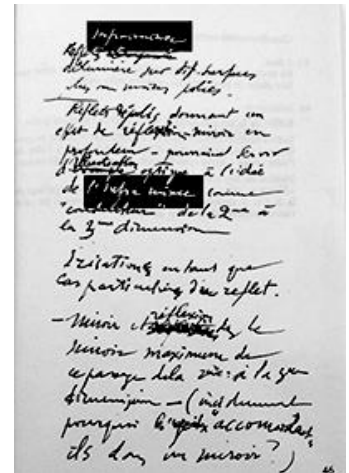 Inframince
Reflets
de lumière sur dif. surfaces
plus ou moins polies.
Reflets dépolis donnant un
effet de réflexion – miroir en
profondeur – pourraient servir
d'illustration optique à l'idée
de l'infra mince comme
"conducteur" de la 2me à
la 3me dimension
Irisations en tant que
cas particuliers du reflet.
– Miroir et réflexion le
miroir maximum de
ce passage de la 3me
dimension – (incidemment
pourquoi les "accomodent"
ils dans un miroir?)